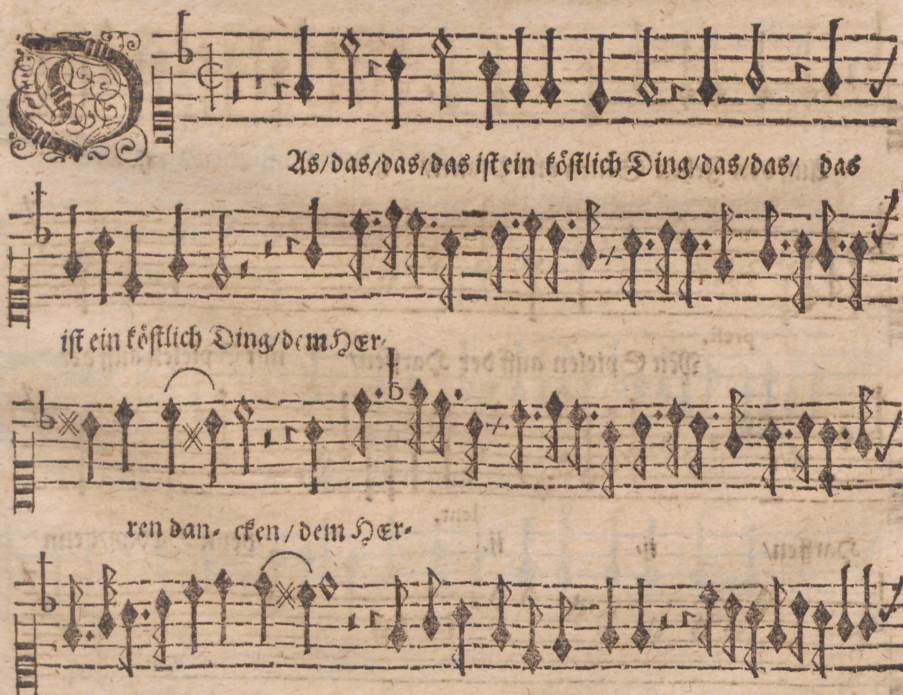 DAs/das/das/das ist ein köstlich Ding/das/das/ das
ist ein köstlich Ding/dem HEr-
ren dan- cken / dem HEr-